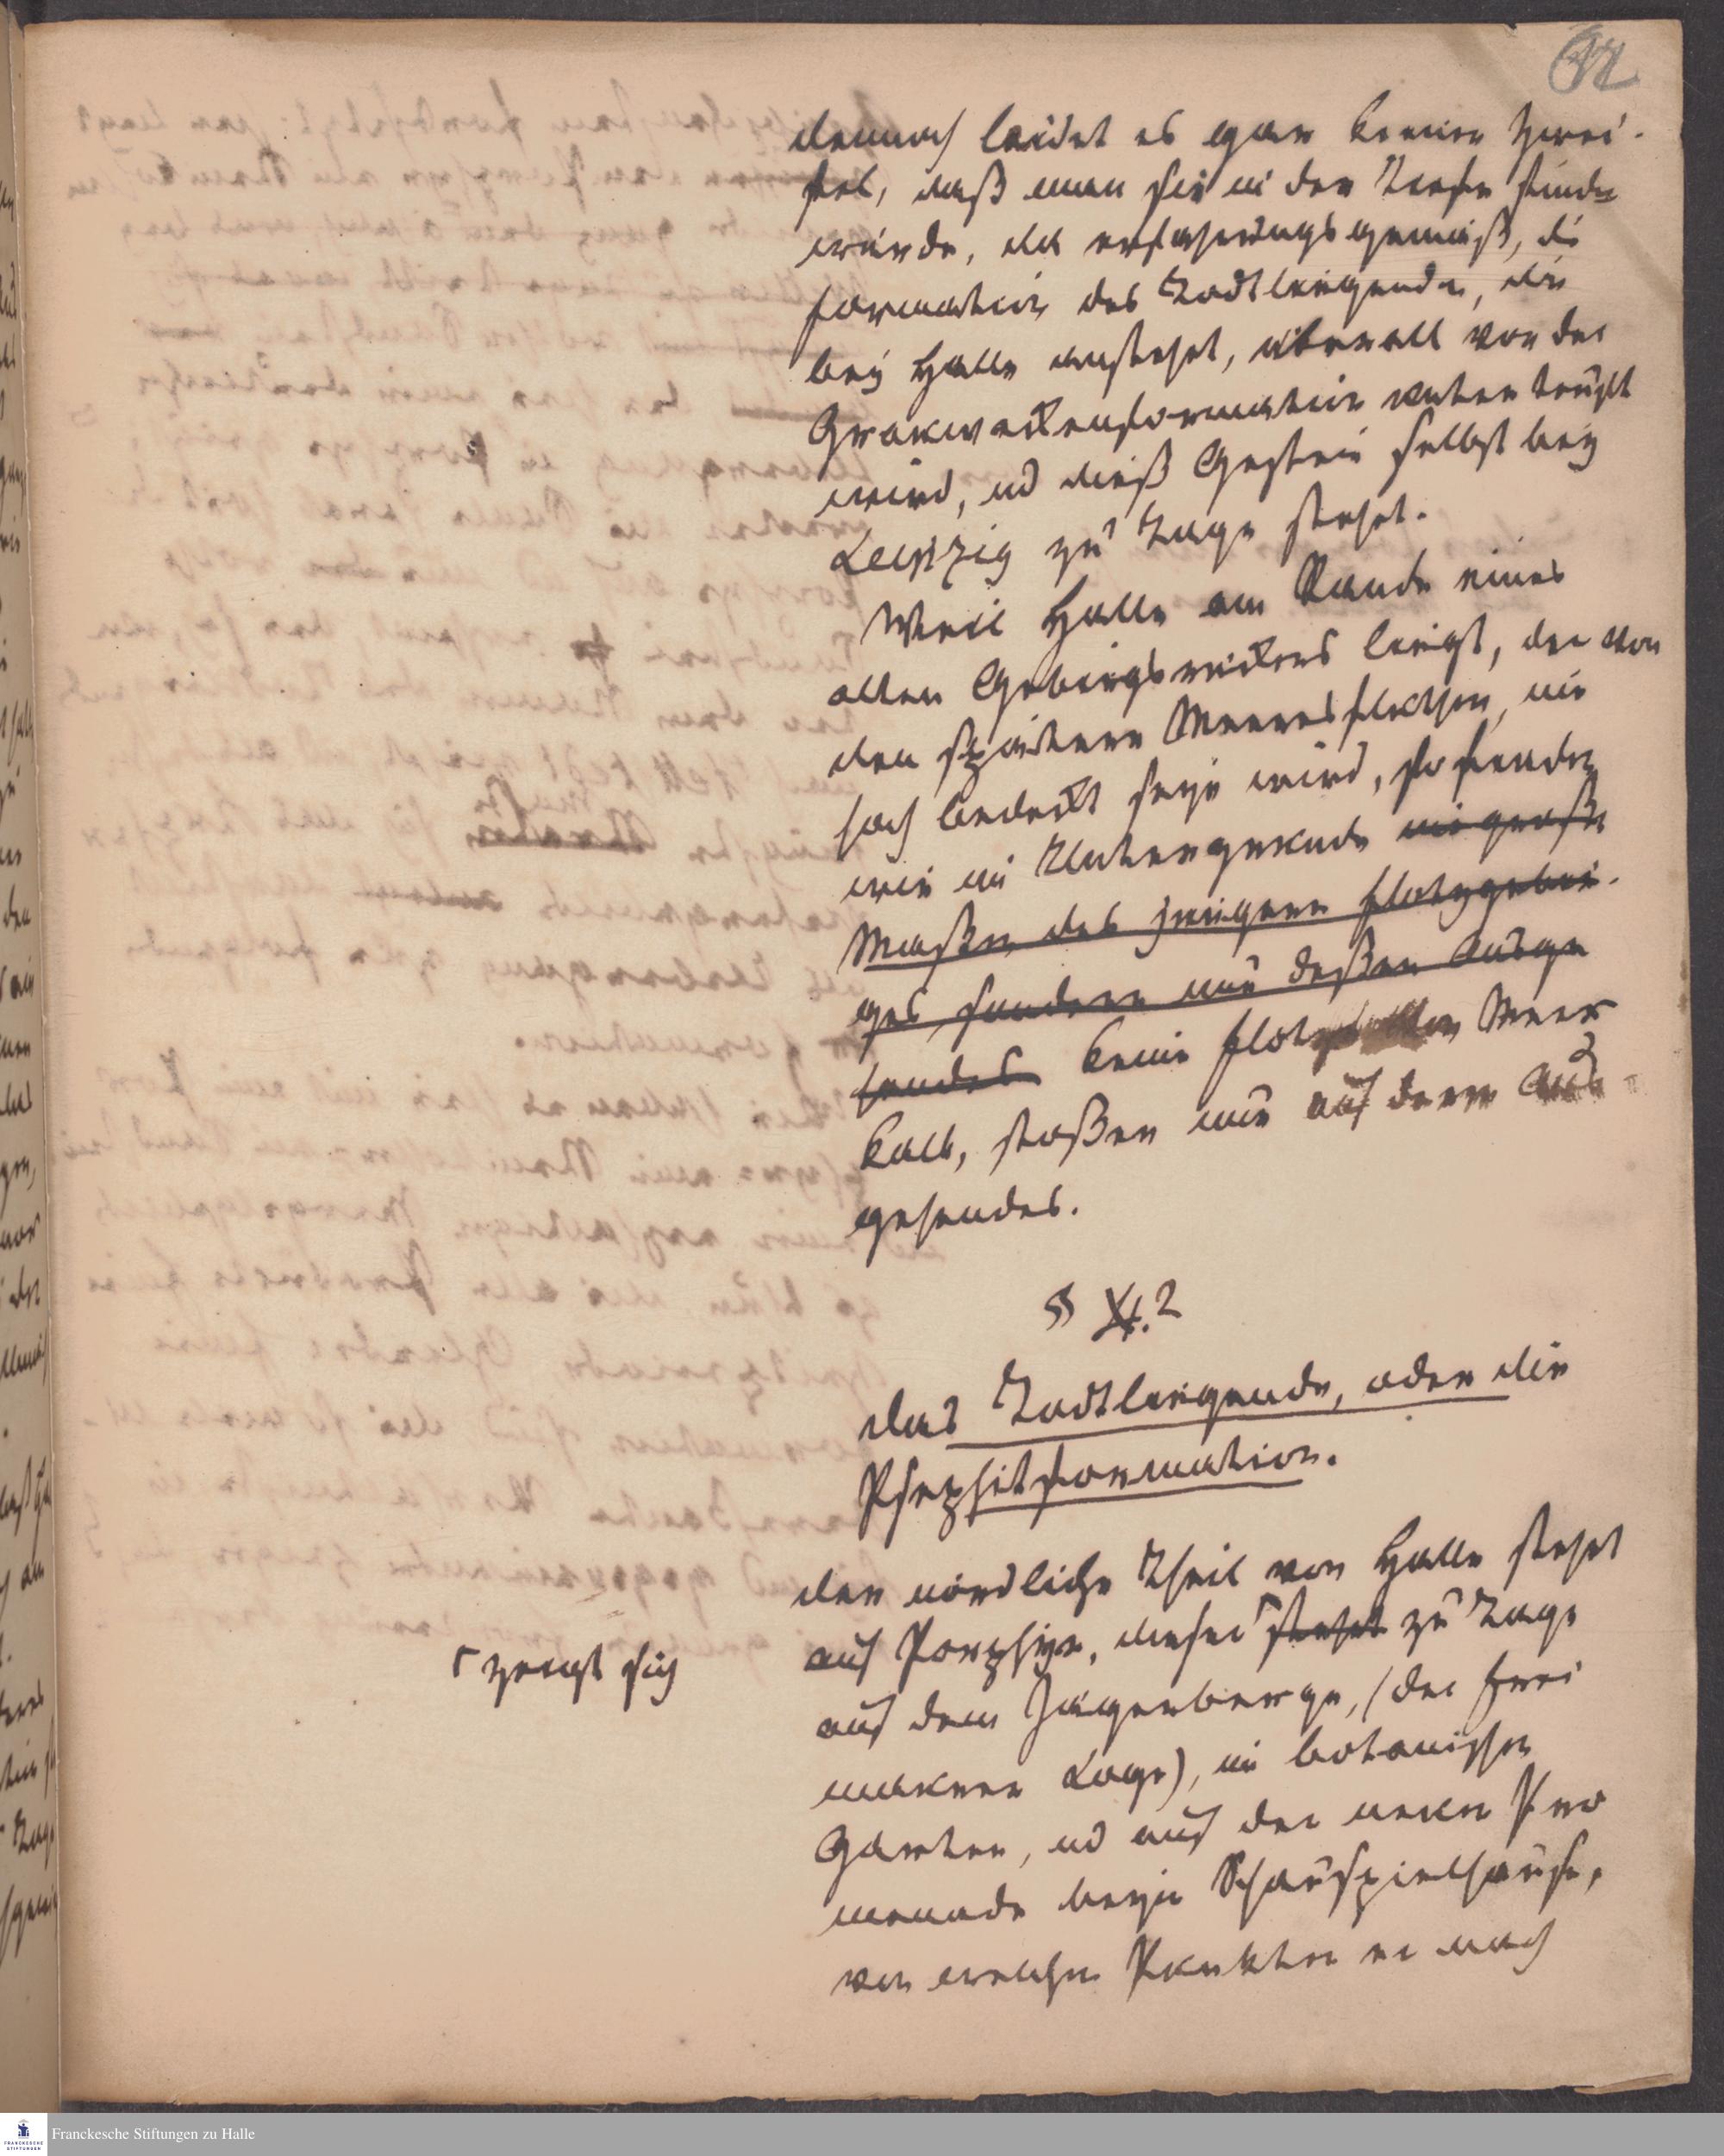 12
dennoch leidet es gar keinen Zwei-
fel, daß man sie in der Tiefe finden
würde, da erfahrungsgemäß, die
Formation des Todtliegenden, die
bey Halle ansteht, überall von der
Grauwackenformation unterteuft
wird, und dieß Gestein selbst bey
Leipzig zu Tage steht.
Weil Halle am Rande eines
alten Gebirgsrückens liegt, der von
den spätern Meeresflethen, nie
hoch bedeckt seyn wird, so finden
wir im Untergrunde nie große
Maßen des jüngern Flötzgebir-
ges, sondern nur deßen Ausge
hendes keine Flötze Meer
kalk, stoßen nur auf deren Aus-
gehendes.
§ 2
Das Todtliegende, oder die
Psephitformation.
Der nördliche Theil von Halle steht
auf Porphyr, dieser ┌ steht zu Tage
┌ zeigt sich
auf dem Jägerberge, (der Frei
maurer Loge), im botanischen
Garten, und auf der neuen Pro
menade beym Schauspielhause,
von welchen Punkten er nach
Franckesche Stiftungen zu Halle